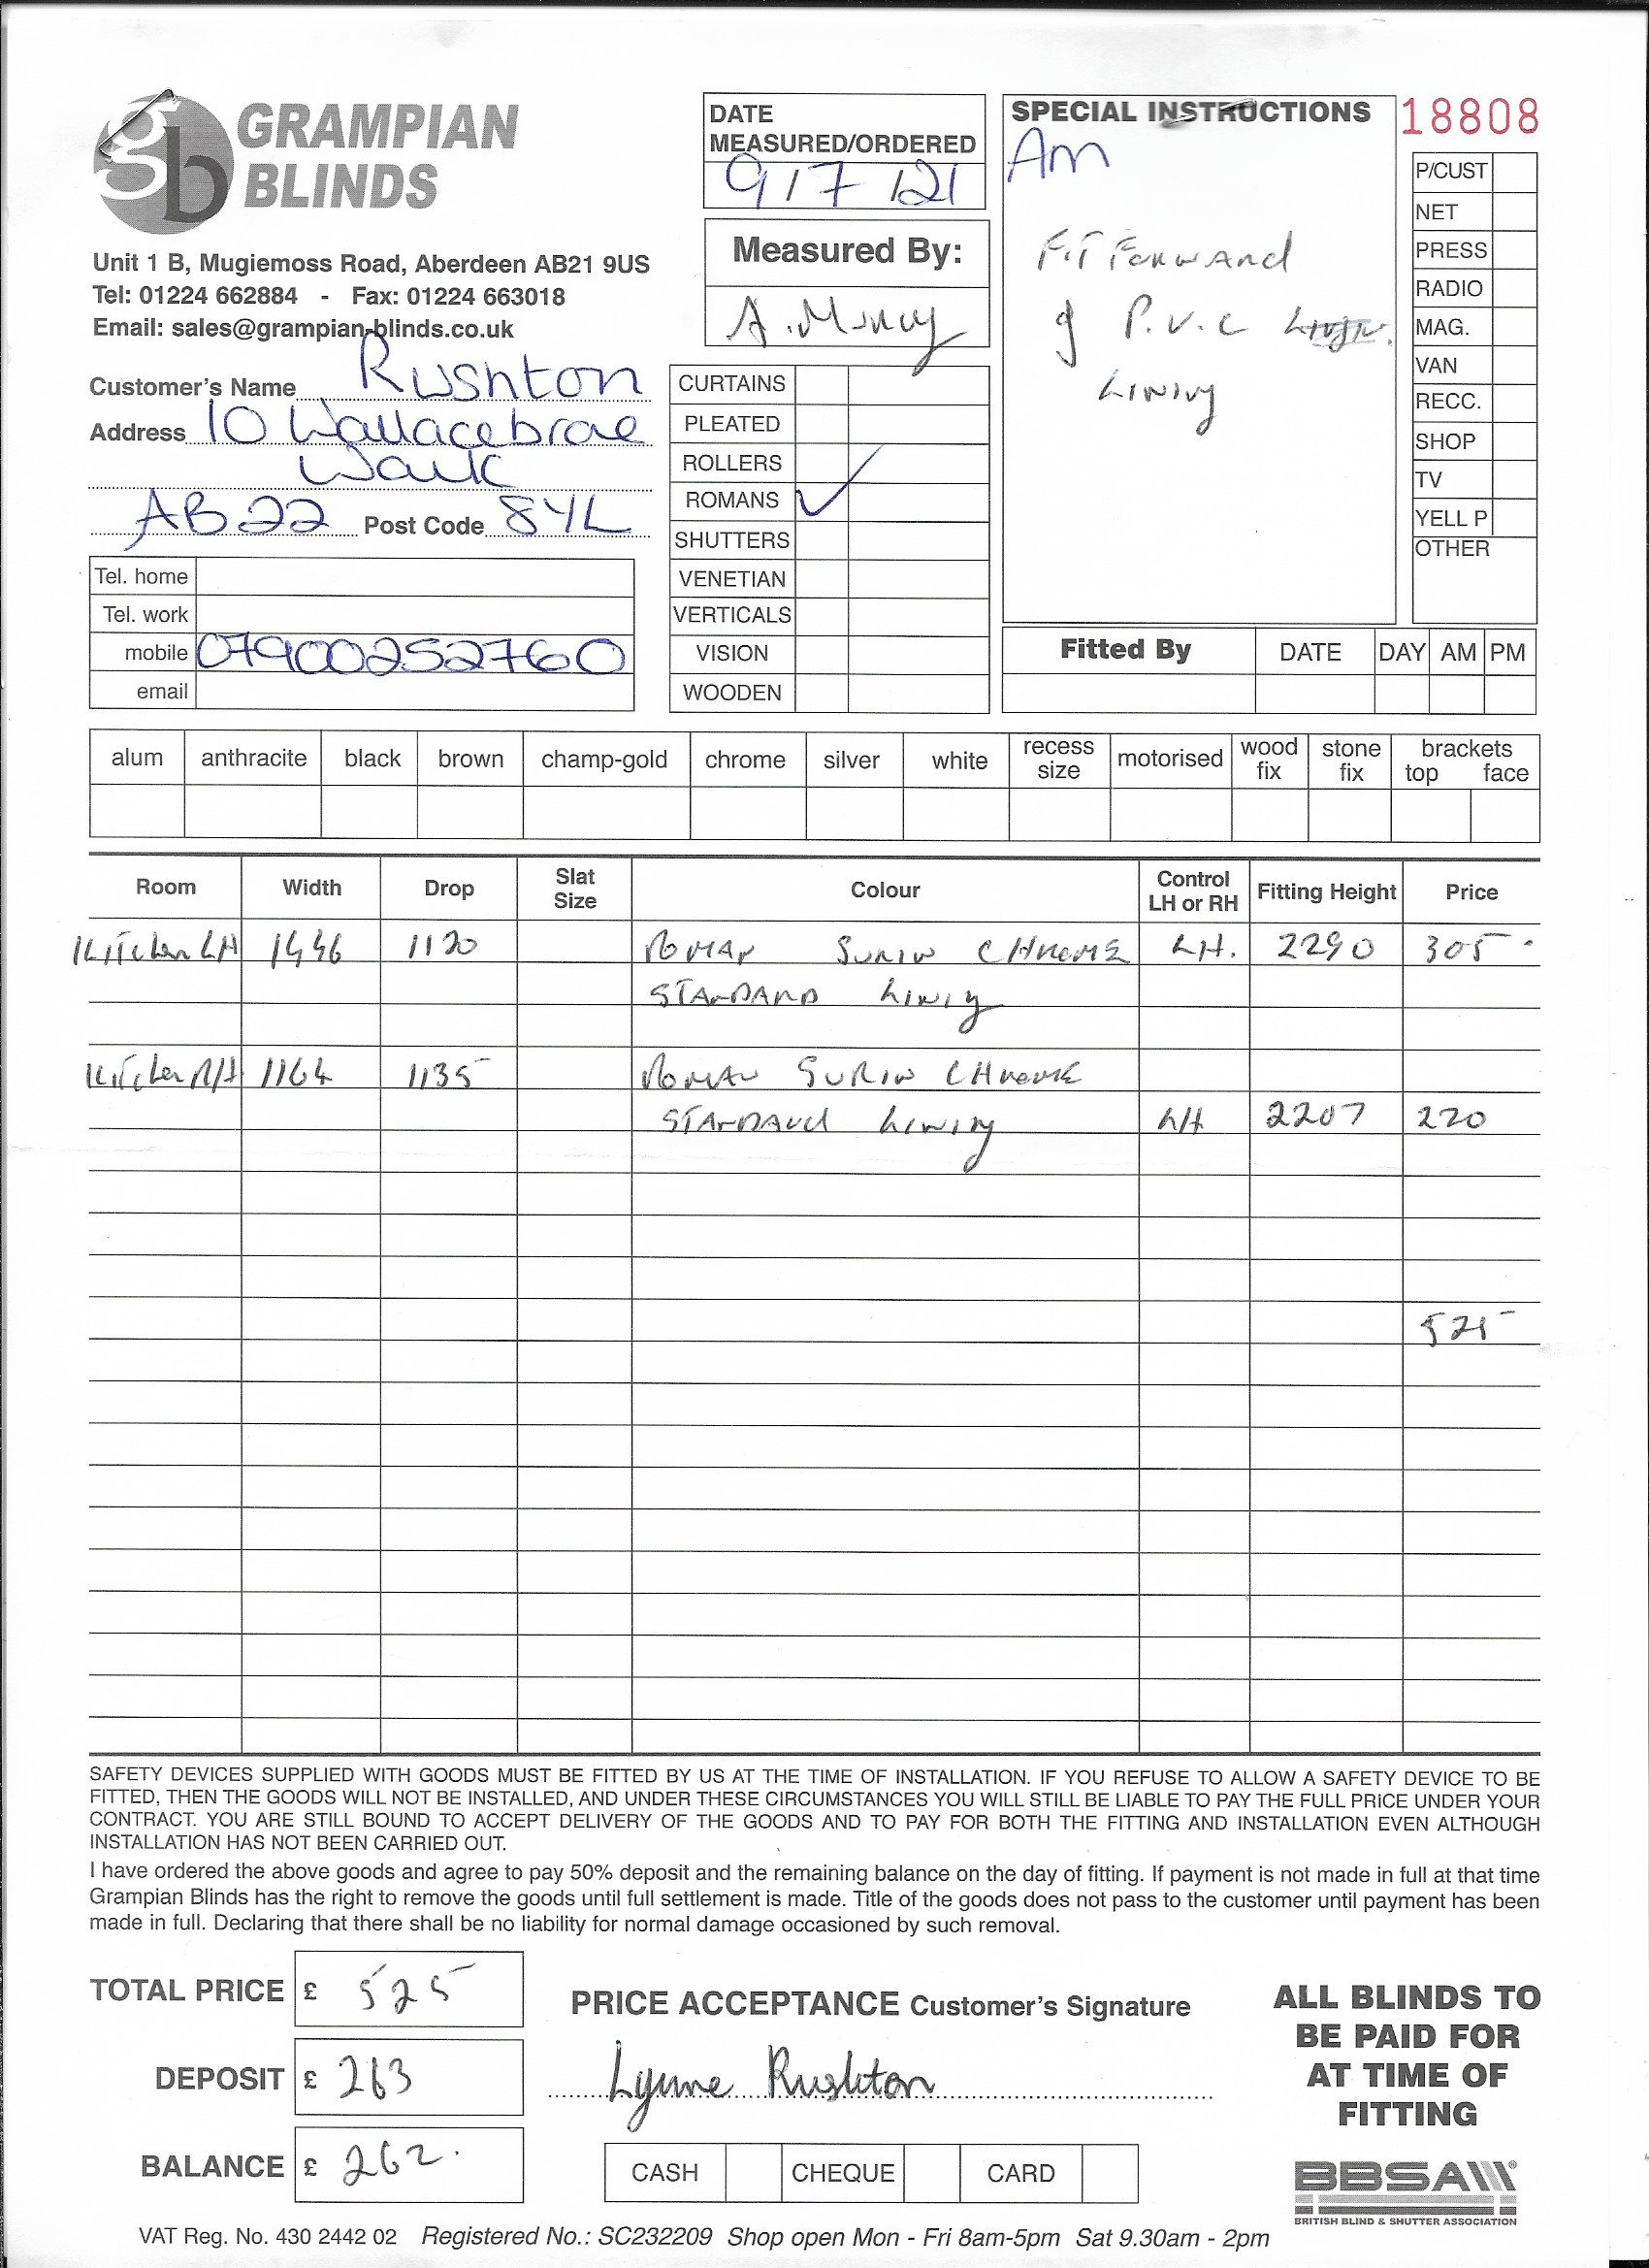 gb GRAMPIAN BLINDS
Unit 1 B, Mugiemoss Road, Aberdeen AB21 9US
Tel: 01224 662884 - Fax: 01224 663018
Email: sales@grampian-blinds.co.uk
Customer's Name Rushton
Address 10 Wallacebrae
Walk
AB22 Post Code 8YL
Tel. home
Tel. work
mobile 07900252760
email
DATE
MEASURED/ORDERED
9/7/21
Measured By:
A.
CURTAINS
PLEATED
ROLLERS
ROMANS ✓
SHUTTERS
VENETIAN
VERTICALS
VISION
WOODEN
SPECIAL INSTRUCTIONS
Am
FIT Forward
of P.V.C
Lining
18808
P/CUST
NET
PRESS
RADIO
MAG.
VAN
RECC.
SHOP
TV
YELL P
OTHER
Fitted By DATE DAY AM PM
alum anthracite black brown champ-gold chrome silver white recess size motorised wood fix stone fix brackets top face
Room Width Drop Slat Size Colour Control LH or RH Fitting Height Price
Kitchen LH 1446 1120 ROMAN SURIN CHROME LH. 2290 305
STANDARD Lining
Kitchen R/H 1164 1135 ROMAN SURIN CHROME
STANDARD Lining LH 2207 220
525
SAFETY DEVICES SUPPLIED WITH GOODS MUST BE FITTED BY US AT THE TIME OF INSTALLATION. IF YOU REFUSE TO ALLOW A SAFETY DEVICE TO BE
FITTED, THEN THE GOODS WILL NOT BE INSTALLED, AND UNDER THESE CIRCUMSTANCES YOU WILL STILL BE LIABLE TO PAY THE FULL PRICE UNDER YOUR
CONTRACT. YOU ARE STILL BOUND TO ACCEPT DELIVERY OF THE GOODS AND TO PAY FOR BOTH THE FITTING AND INSTALLATION EVEN ALTHOUGH
INSTALLATION HAS NOT BEEN CARRIED OUT.
I have ordered the above goods and agree to pay 50% deposit and the remaining balance on the day of fitting. If payment is not made in full at that time
Grampian Blinds has the right to remove the goods until full settlement is made. Title of the goods does not pass to the customer until payment has been
made in full. Declaring that there shall be no liability for normal damage occasioned by such removal.
TOTAL PRICE £ 525
DEPOSIT £ 263
BALANCE £ 262.
PRICE ACCEPTANCE Customer's Signature
Lynne Rushton
CASH CHEQUE CARD
ALL BLINDS TO
BE PAID FOR
AT TIME OF
FITTING
BBSA
BRITISH BLIND & SHUTTER ASSOCIATION
VAT Reg. No. 430 2442 02 Registered No.: SC232209 Shop open Mon - Fri 8am-5pm Sat 9.30am - 2pm